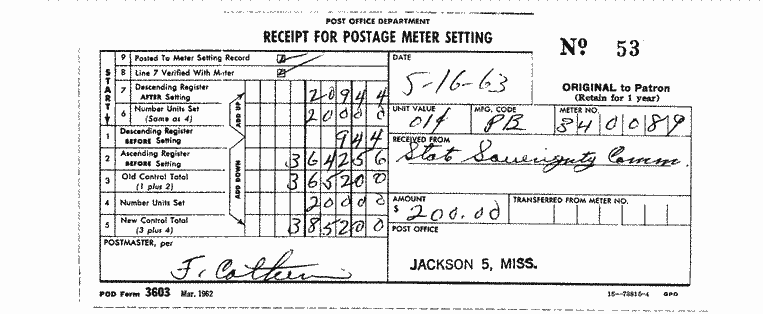 POST OFFICE DEPARTMENT
RECEIPT FOR POSTAGE METER SETTING
Nº 53
ORIGINAL to Patron
(Retain for 1 year)
START
9 Posted To Meter Setting Record
8 Line 7 Verified With Meter
7 Descending Register AFTER Setting 20944
6 Number Units Set (Same as 4) 20000
ADD UP
1 Descending Register BEFORE Setting 944
2 Ascending Register BEFORE Setting 364256
3 Old Control Total (1 plus 2) 365200
ADD DOWN
4 Number Units Set 20000
5 New Control Total (3 plus 4) 385200
POSTMASTER, per
DATE
5-16-63
UNIT VALUE 01¢
MFG. CODE PB
METER NO. 840089
RECEIVED FROM
State Sovereignty Comm.
AMOUNT
$ 200.00
TRANSFERRED FROM METER NO.
POST OFFICE
JACKSON 5, MISS.
POD Form 3603 Mar. 1962
16—78815-4 GPO